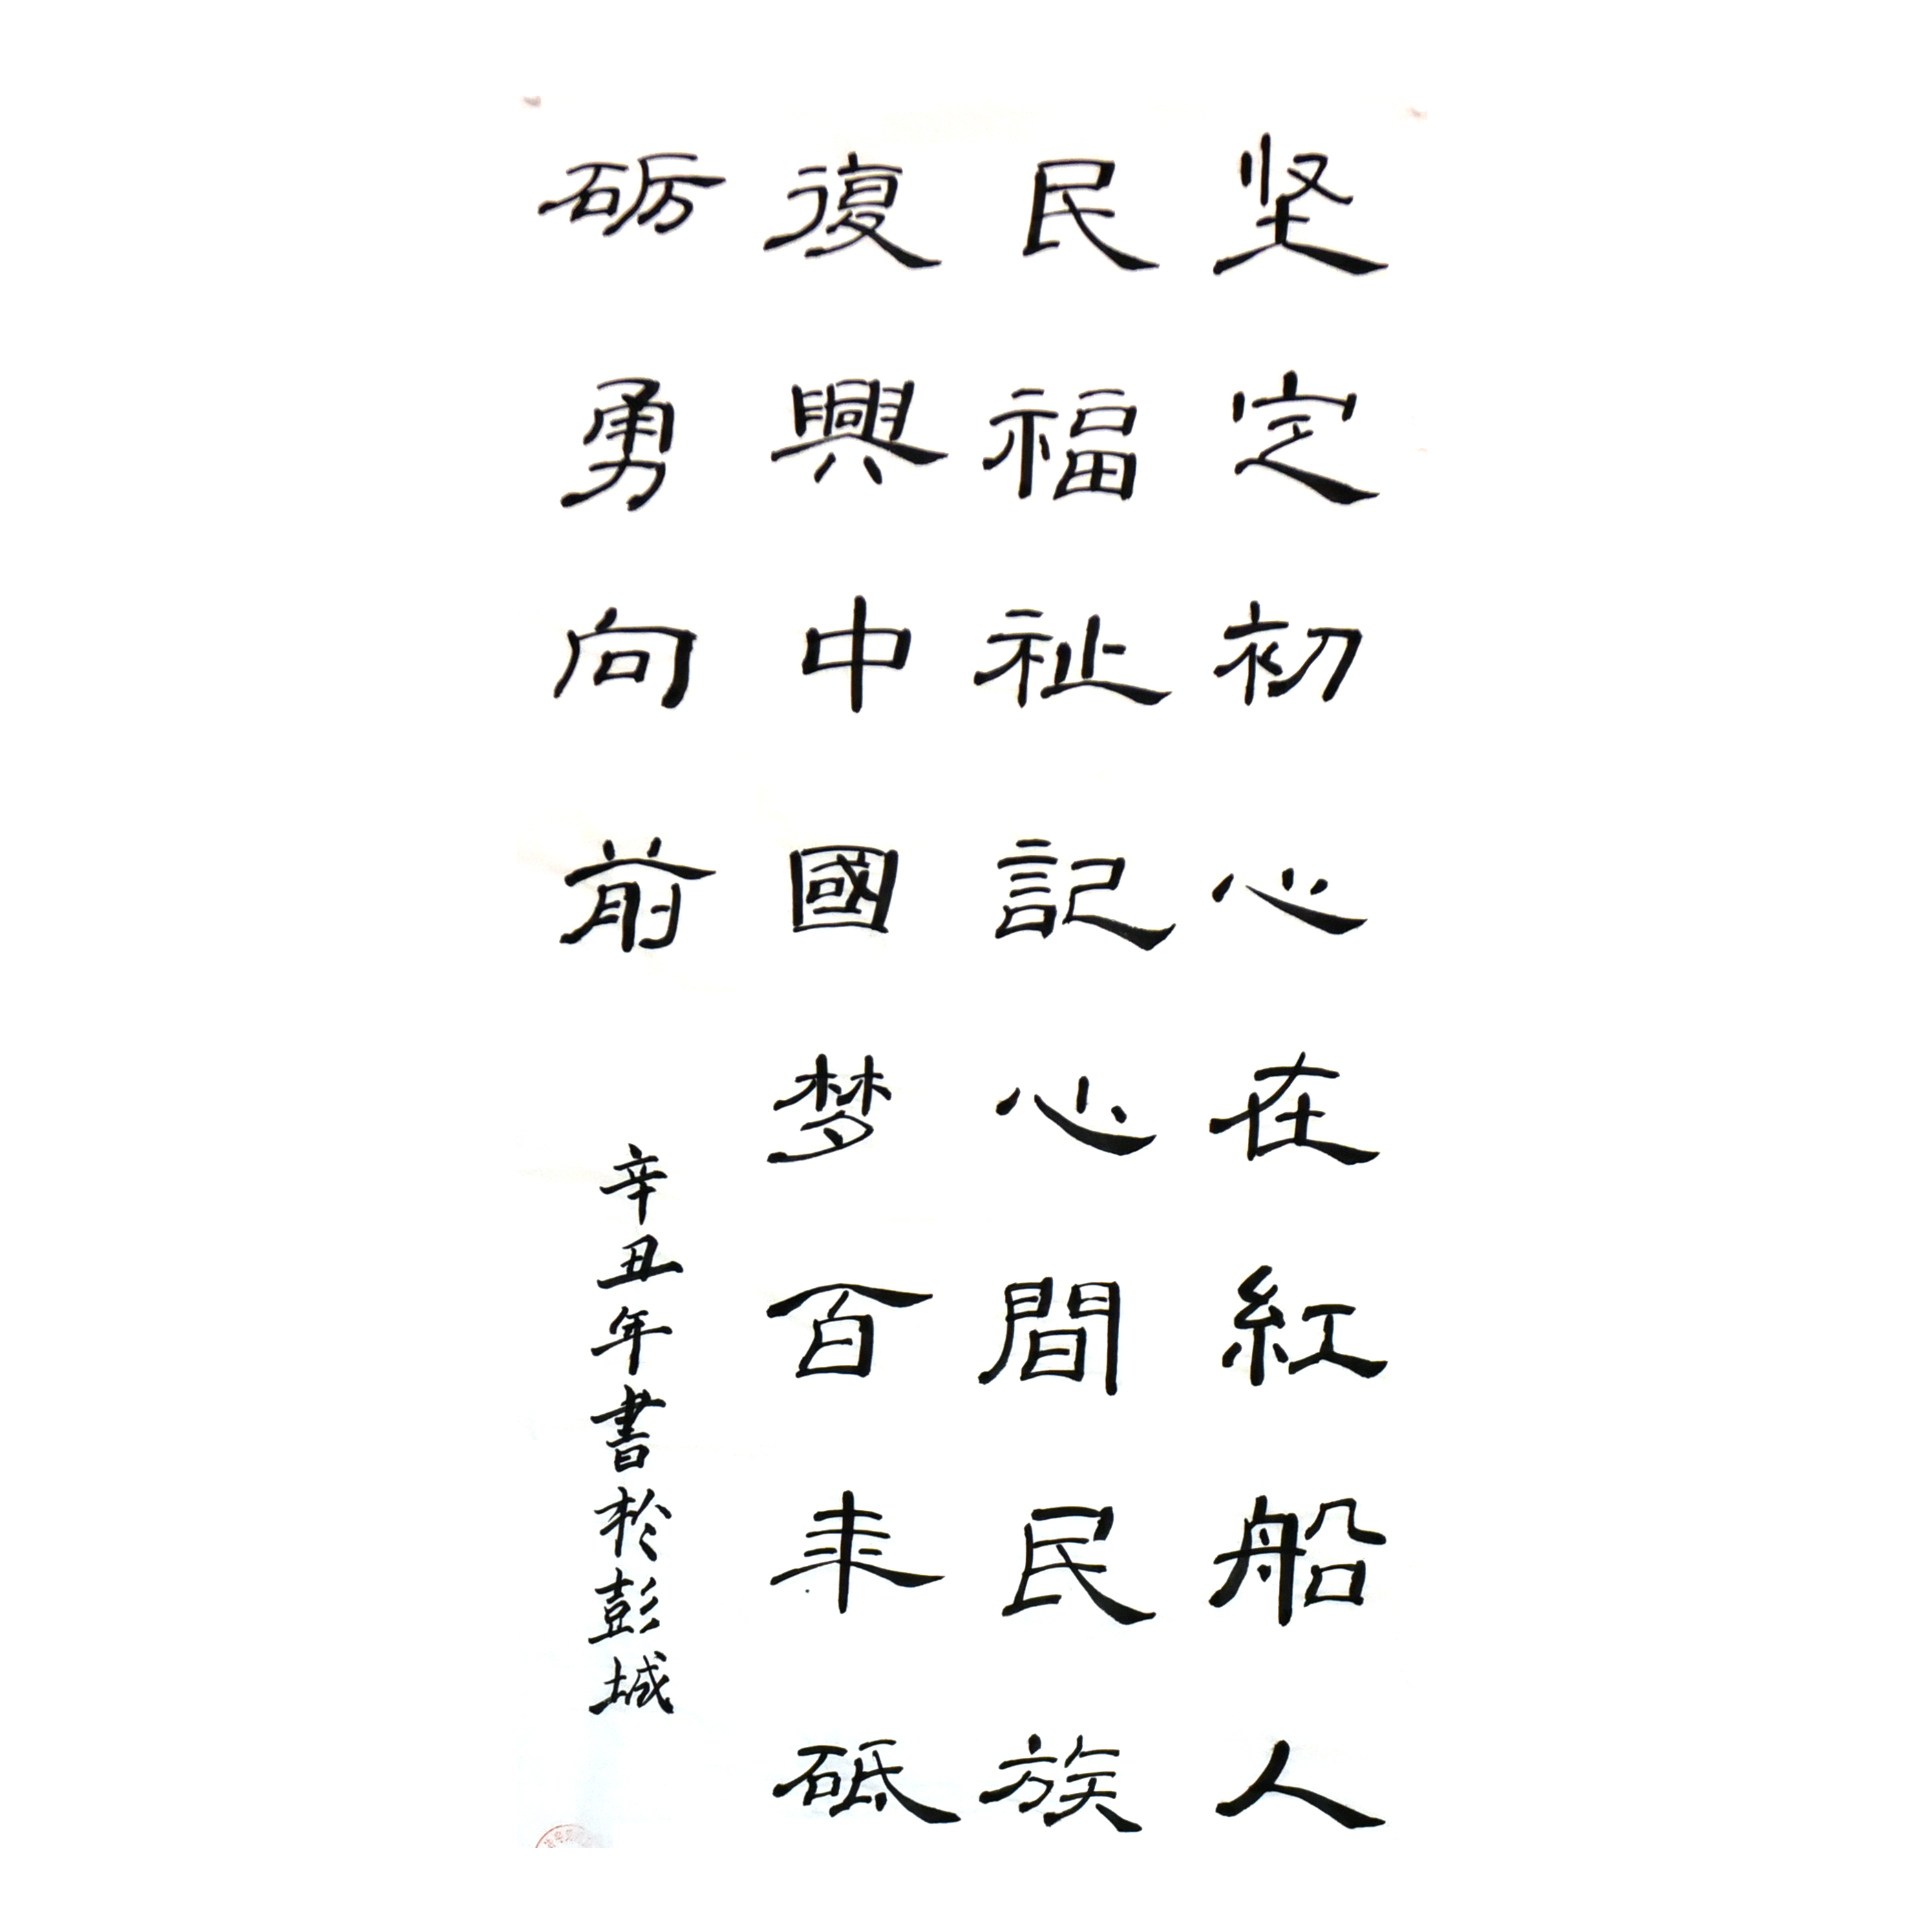 坚定初心在紅船人
民福祉記心間民族
復興中國梦百年砥
砺勇向前
辛丑年書於彭城